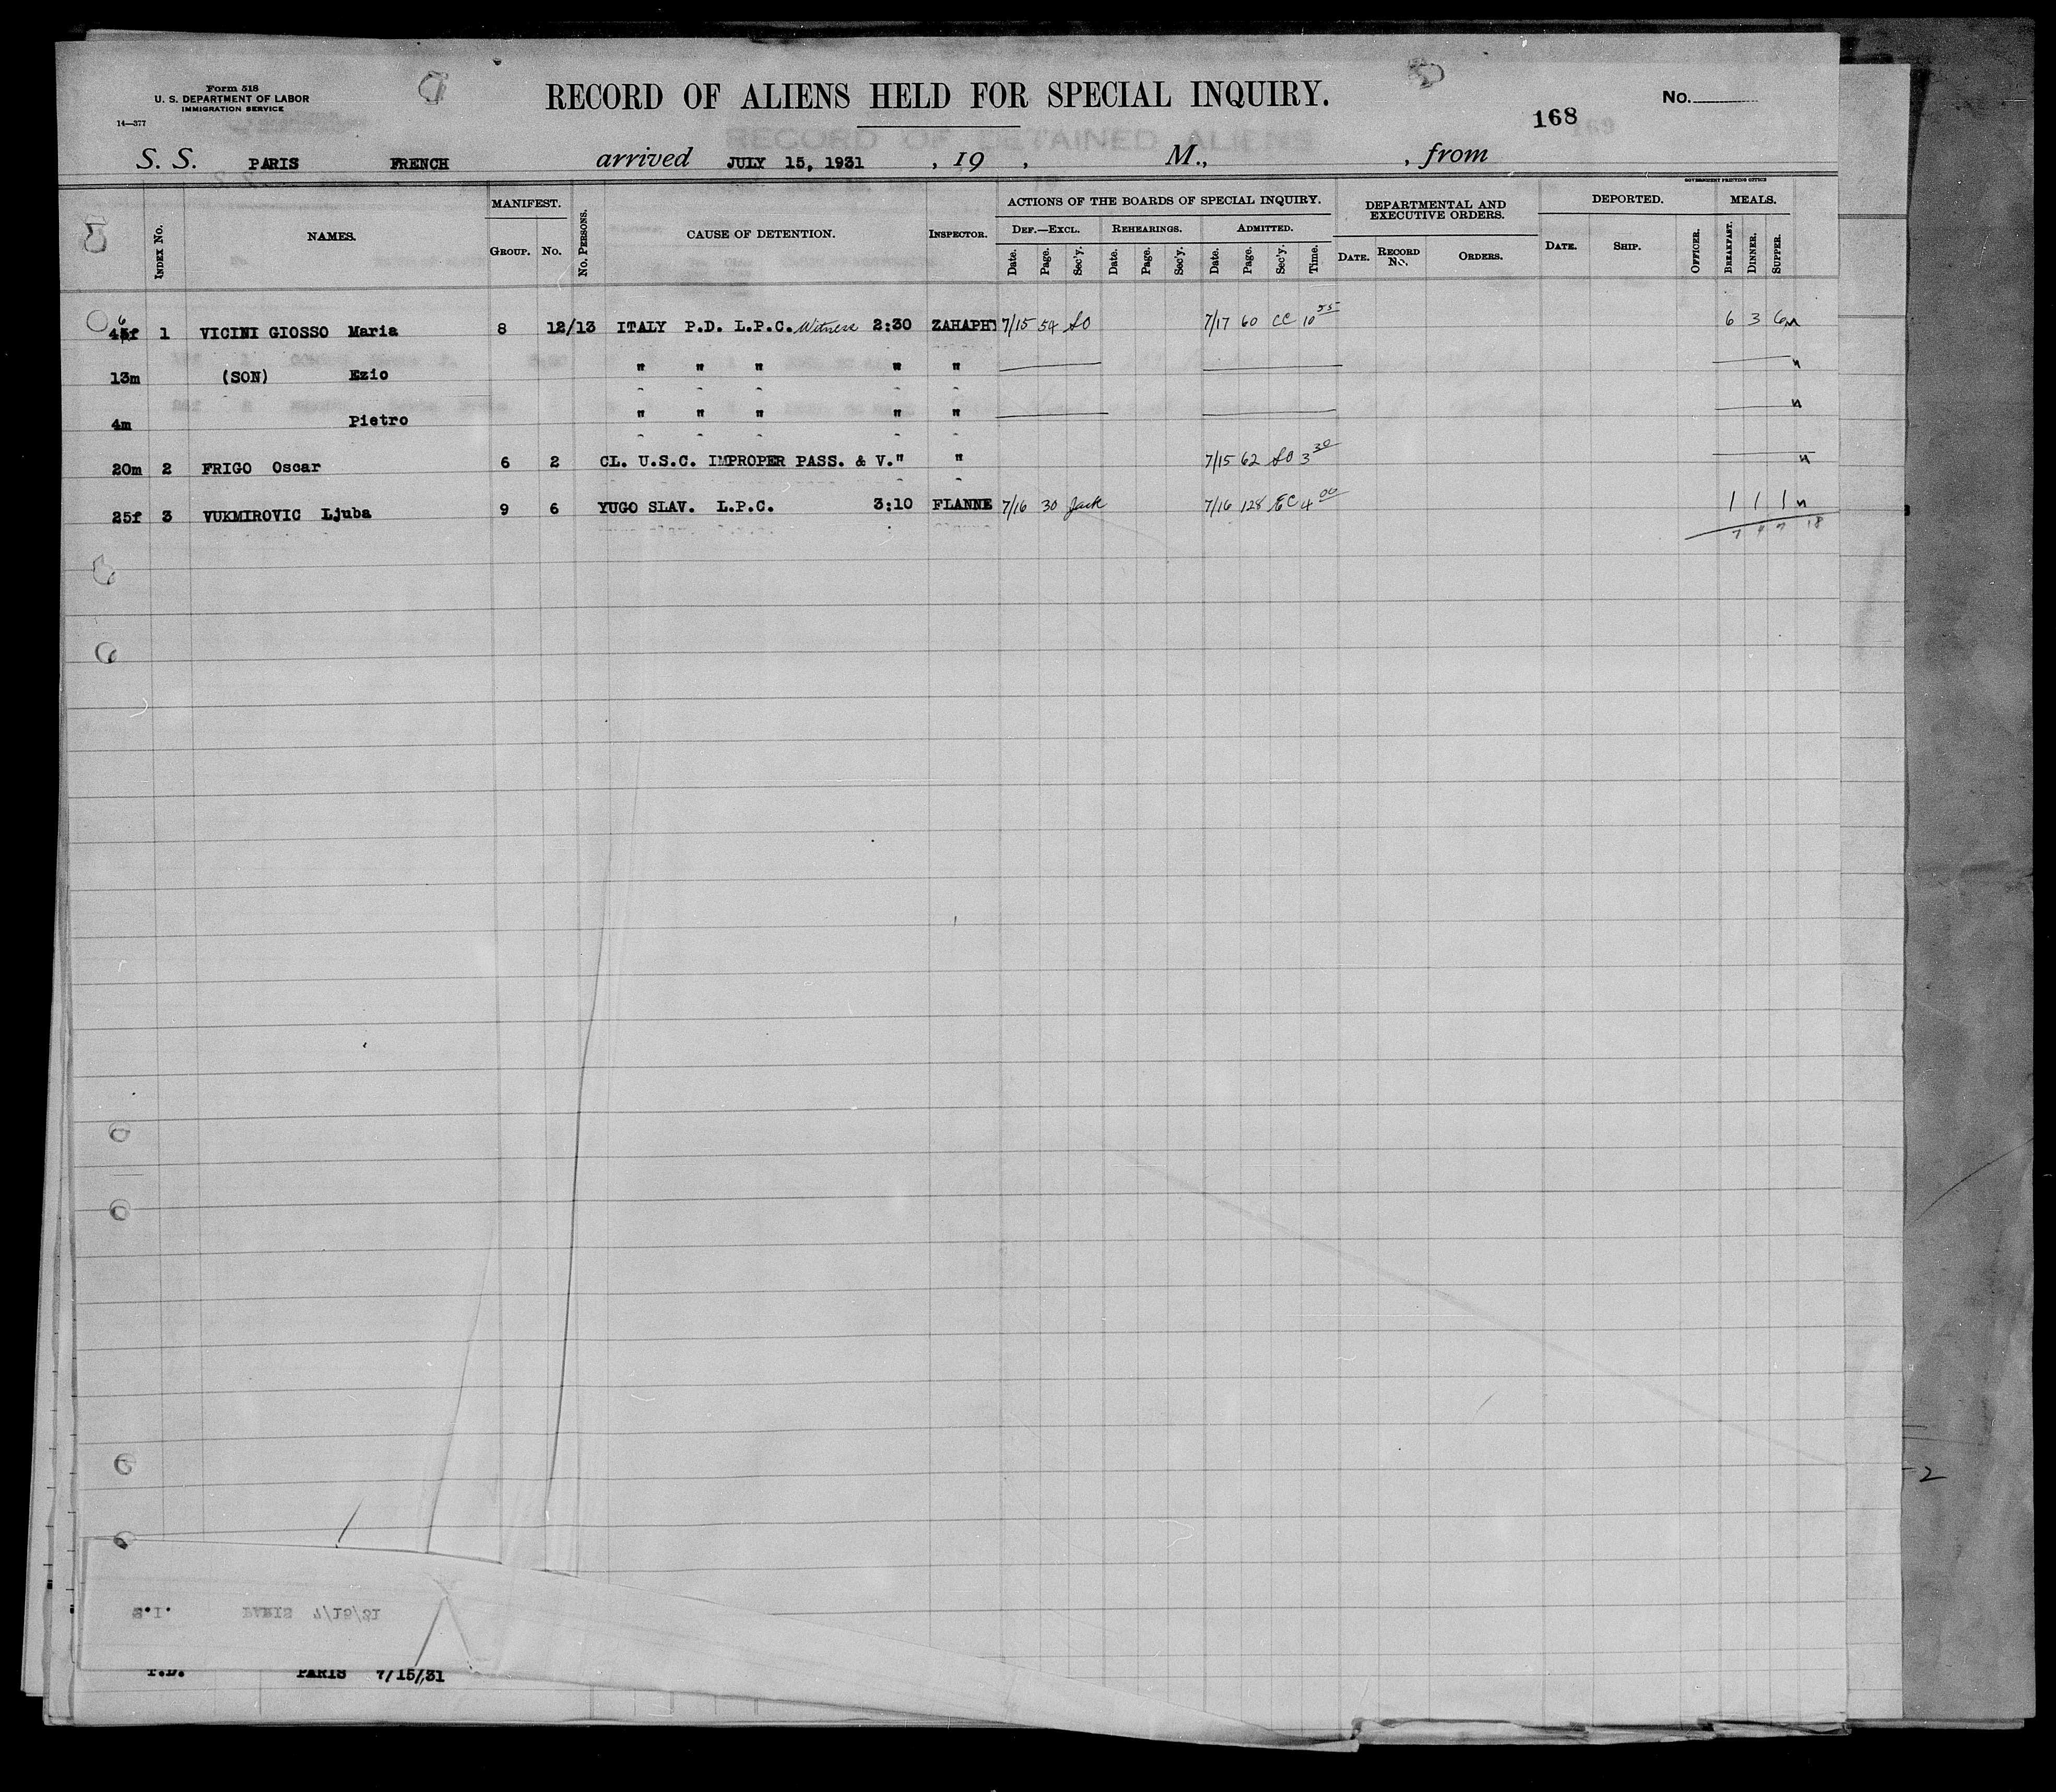 Form 518
U. S. DEPARTMENT OF LABOR
IMMIGRATION SERVICE
14—377
RECORD OF ALIENS HELD FOR SPECIAL INQUIRY.
No.
168
S. S. PARIS FRENCH arrived JULY 15, 1931 , 19 , M., , from
GOVERNMENT PRINTING OFFICE
INDEX NO. NAMES. MANIFEST. GROUP. NO. NO. PERSONS. CAUSE OF DETENTION. INSPECTOR. ACTIONS OF THE BOARDS OF SPECIAL INQUIRY. DEPARTMENTAL AND EXECUTIVE ORDERS. DEPORTED. MEALS.
DEF.—EXCL. REHEARINGS. ADMITTED.
Date. Page. Sec'y. Date. Page. Sec'y. Date. Page. Sec'y. Time. DATE. RECORD NO. ORDERS. DATE. SHIP. OFFICER. BREAKFAST. DINNER. SUPPER.
46f 1 VICINI GIOSSO Maria 8 12/13 ITALY P.D. L.P.C. Witness 2:30 ZAHAPHT 7/15 54 SO 7/17 60 CC 10 55 6 3 6 M
13m (SON) Ezio " " " " " "
4m Pietro " " " " " "
20m 2 FRIGO Oscar 6 2 CL. U.S.C. IMPROPER PASS. & V. " " 7/15 62 SO 3 30 "
25f 3 VUKMIROVIC Ljuba 9 6 YUGO SLAV. L.P.C. 3:10 FLANNE 7/16 30 Jack 7/16 128 EC 4 00 1 1 1 n
7 4 7 18
2
S.I. PARIS 7/15/31
T.D. PARIS 7/15/31